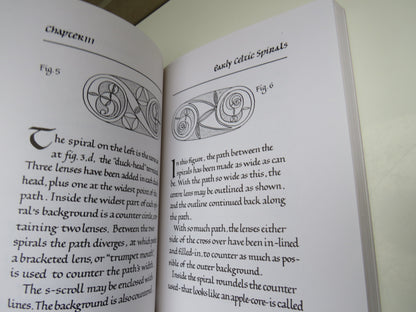 Chapter III
Fig. 5
The spiral on the left is the same as
at fig. 3, d, the "duck-head" terminal.
Three lenses have been added in each duck
head, plus one at the widest point of the
path. Inside the widest part of each spi-
ral's background is a counter circle, con-
taining two lenses. Between the two
spirals the path diverges, at which point
a bracketed lens, or "trumpet mouth",
is used to counter the path's width.
The s-scroll may be enclosed
lines. The background is also countered
Early Celtic Spirals
Fig. 6
In this figure, the path between the
spirals has been made as wide as can
be. With the path so wide as this, the
centre lens may be outlined as shown,
and the outline continued back along
the path.
With so much path, the lenses either
side of the cross over have been in-lined
and filled-in, to counter as much as pos-
ible of the outer background.
Inside the spiral roundels the counter
used - that looks like an apple-core is called